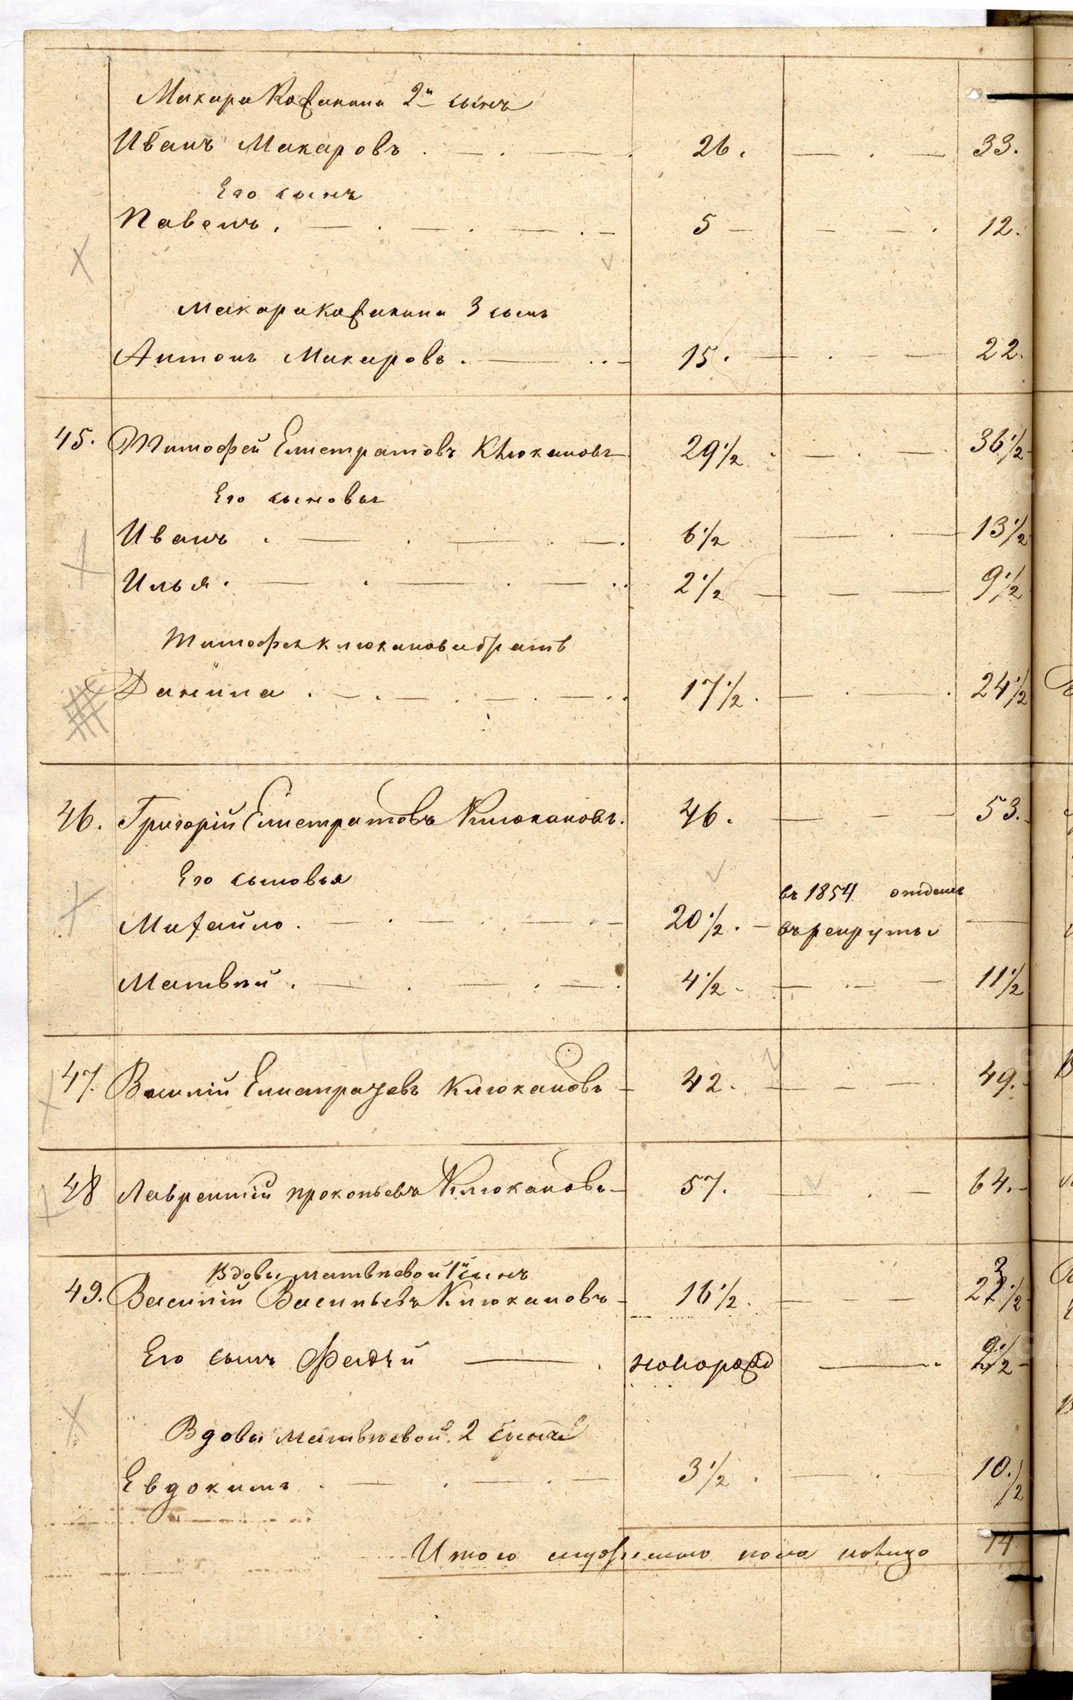 Макара Кофанина 2й сынъ
Иванъ Макаровъ 26. 33.
Его сынъ
Павелъ. 5 12.
Макара Кофанина 3 сынъ
Антонъ Макаровъ. 15. 22.
45. Тимофей Елистратовъ Клюкановъ 29 1/2 36 1/2
Его сыновья
Иванъ 6 1/2 13 1/2
Илья. 2 1/2 9 1/2
Тимофея Клюканова братъ
Данила. 17 1/2. 24 1/2
46. Григорій Елистратовъ Клюкановъ. 46. 53.
Его сыновья
Михайло. 20 1/2. въ 1854 отданъ
въ рекруты
Матвѣй. 4 1/2 11 1/2
47. Василій Елистратовъ Клюкановъ 42. 49.
48 Лаврентій Прокопьевъ Клюкановъ 57. 64.
Вдовы Матвѣевой 1й сынъ
49. Василій Васильевъ Клюкановъ 16 1/2. 23 1/2
Его сынъ Фадѣй новорожд
Вдовы Матвѣевой 2 сынъ
Евдокимъ 3 1/2. 10 1/2
Итого мужескаго пола налицо 14